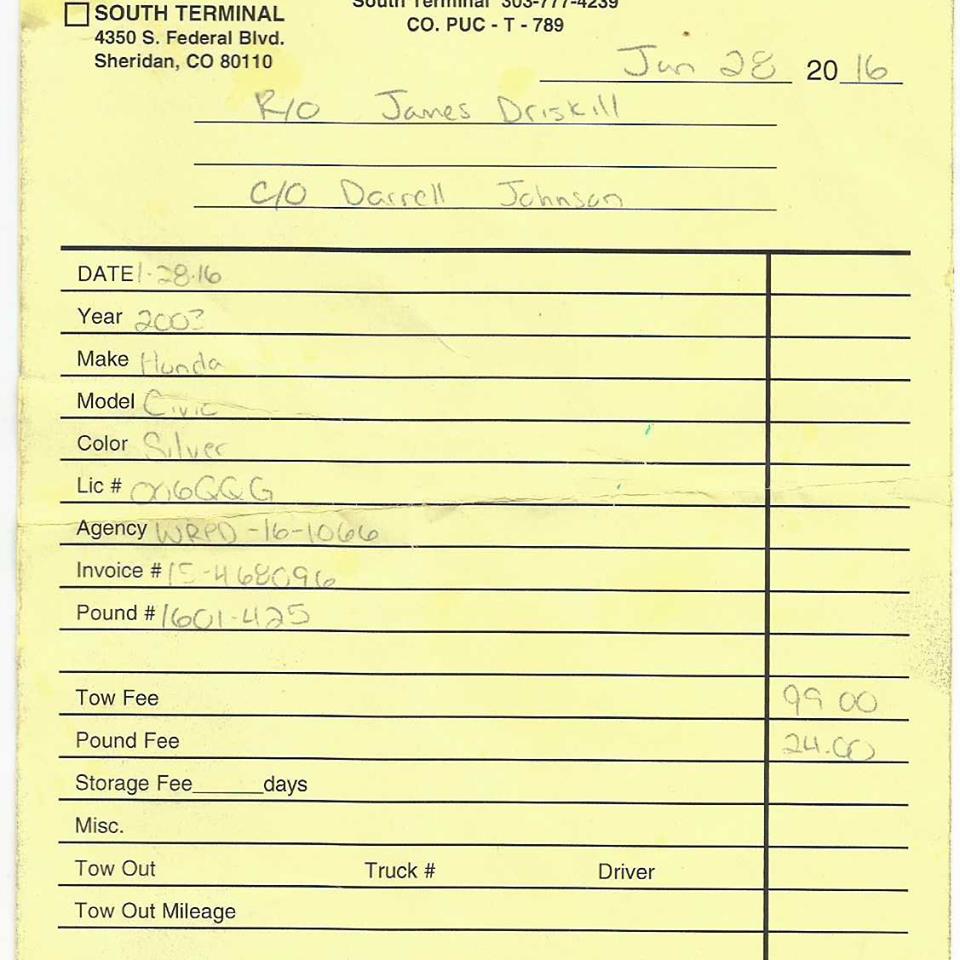 South Terminal 303-777-4239
SOUTH TERMINAL
CO. PUC - T - 789
4350 S. Federal Blvd.
Sheridan, CO 80110
Jan 28 2016
R/O James Driskill
C/O Darrell Johnson
DATE 1-28-16
Year 2003
Make Honda
Model Civic
Color Silver
Lic #
Agency WRPD-16-1066
Invoice # 15-468096
Pound # 1601-425
Tow Fee 99 00
Pound Fee 24.00
Storage Fee______days
Misc.
Tow Out Truck # Driver
Tow Out Mileage